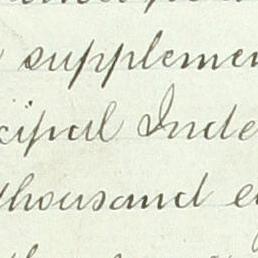 supplemen
cipal Inde
thousand e